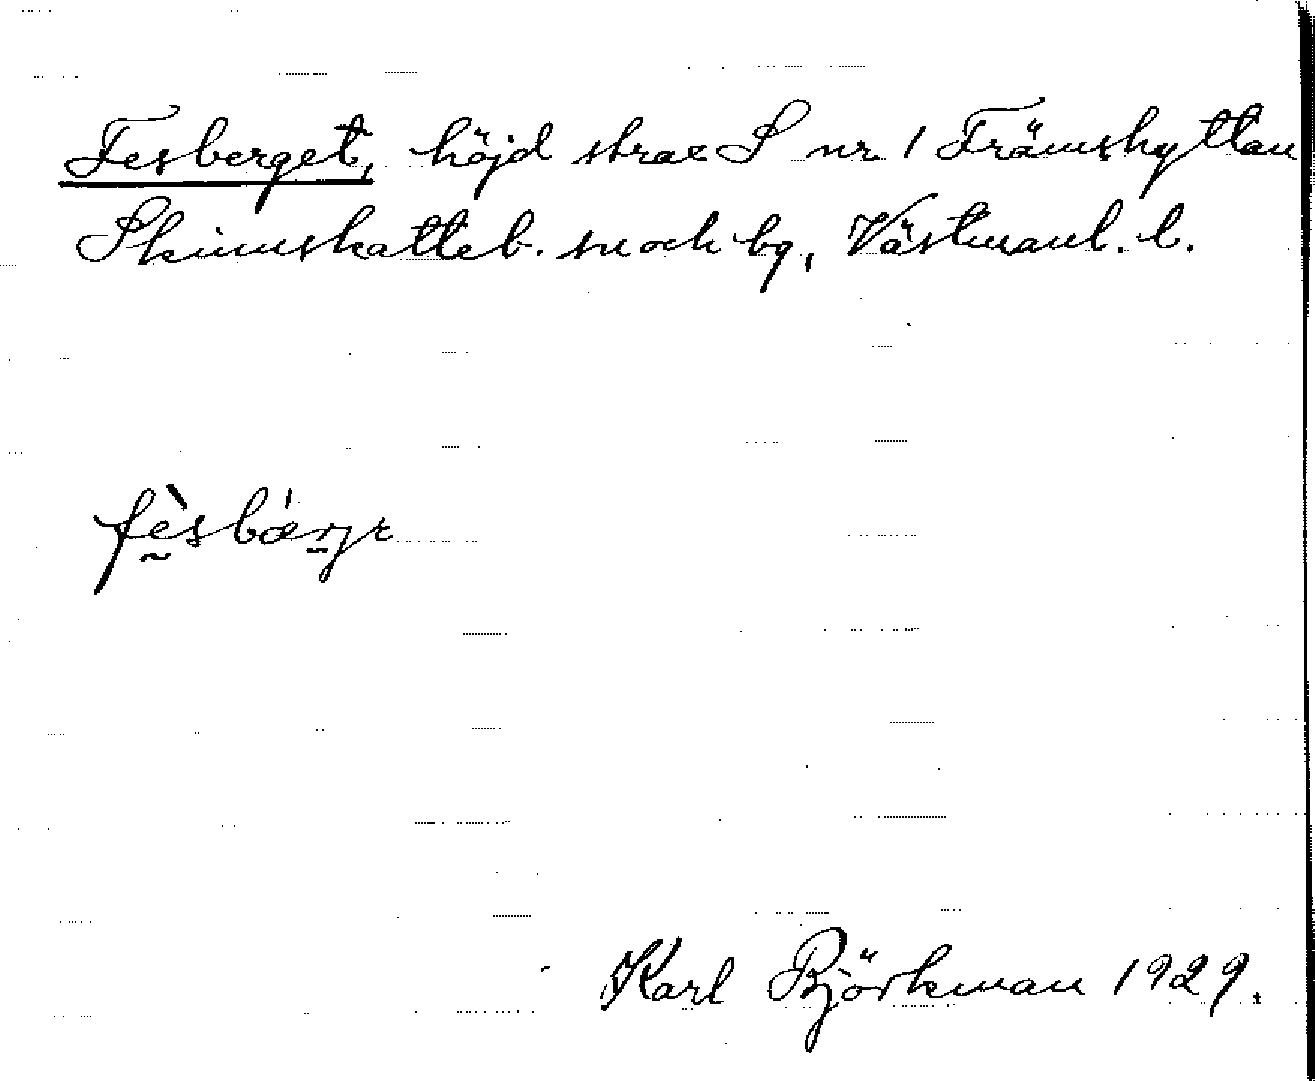 Fesberget, höjd strax S nr 1 Främshyttan
Skinnskatteb. sn och bg, Västmanl. l.
fèsbærjɛ
Karl Björkman 1929.